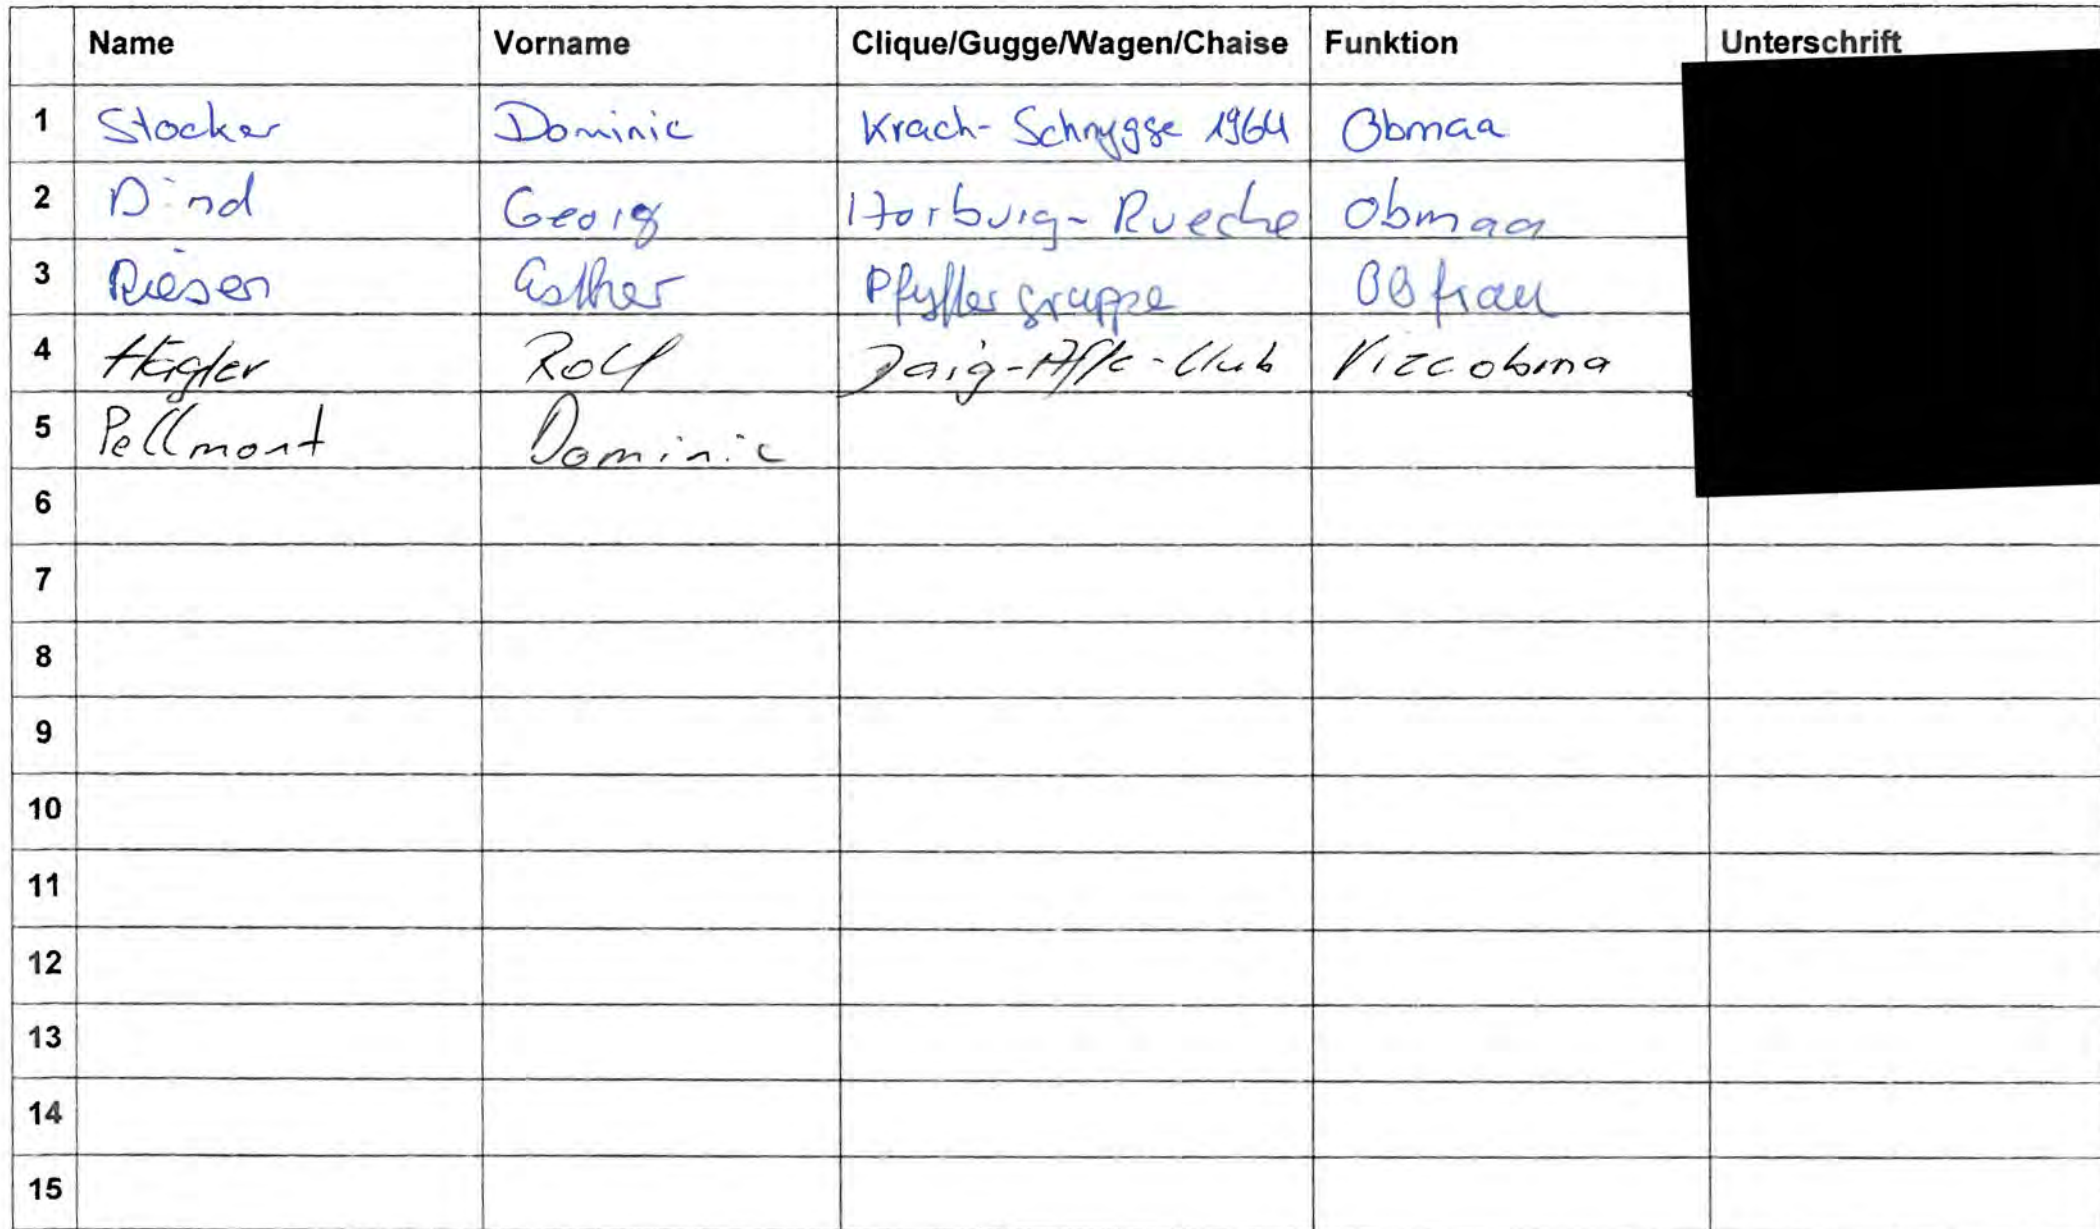 Name Vorname Clique/Gugge/Wagen/Chaise Funktion Unterschrift
1 Stocker Dominic Krach-Schnygge 1964 Obmaa
2 Georg Horburg-Rueche Obmaa
3 Riesen Esther Pfyffergruppe Obfrau
4 Hägler Rolf Daig-Affe-Club Vizeobma
5 Pellmont Dominic
6
7
8
9
10
11
12
13
14
15